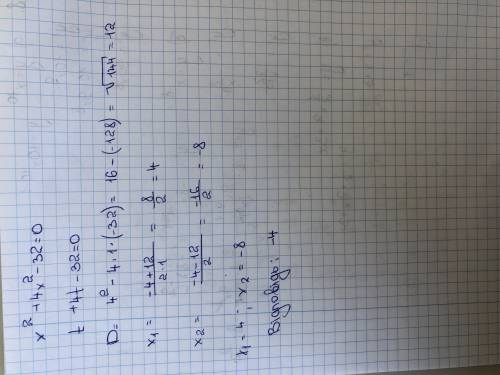 x² + 4x² - 32 = 0
t + 4t - 32 = 0
D = 4² - 4 · 1 · (-32) = 16 - (-128) = √144 = 12
x₁ = (-4 + 12)/(2 · 1) = 8/2 = 4
x₂ = (-4 - 12)/2 = -16/2 = -8
x₁ = 4 ; x₂ = -8
Відповідь: -4